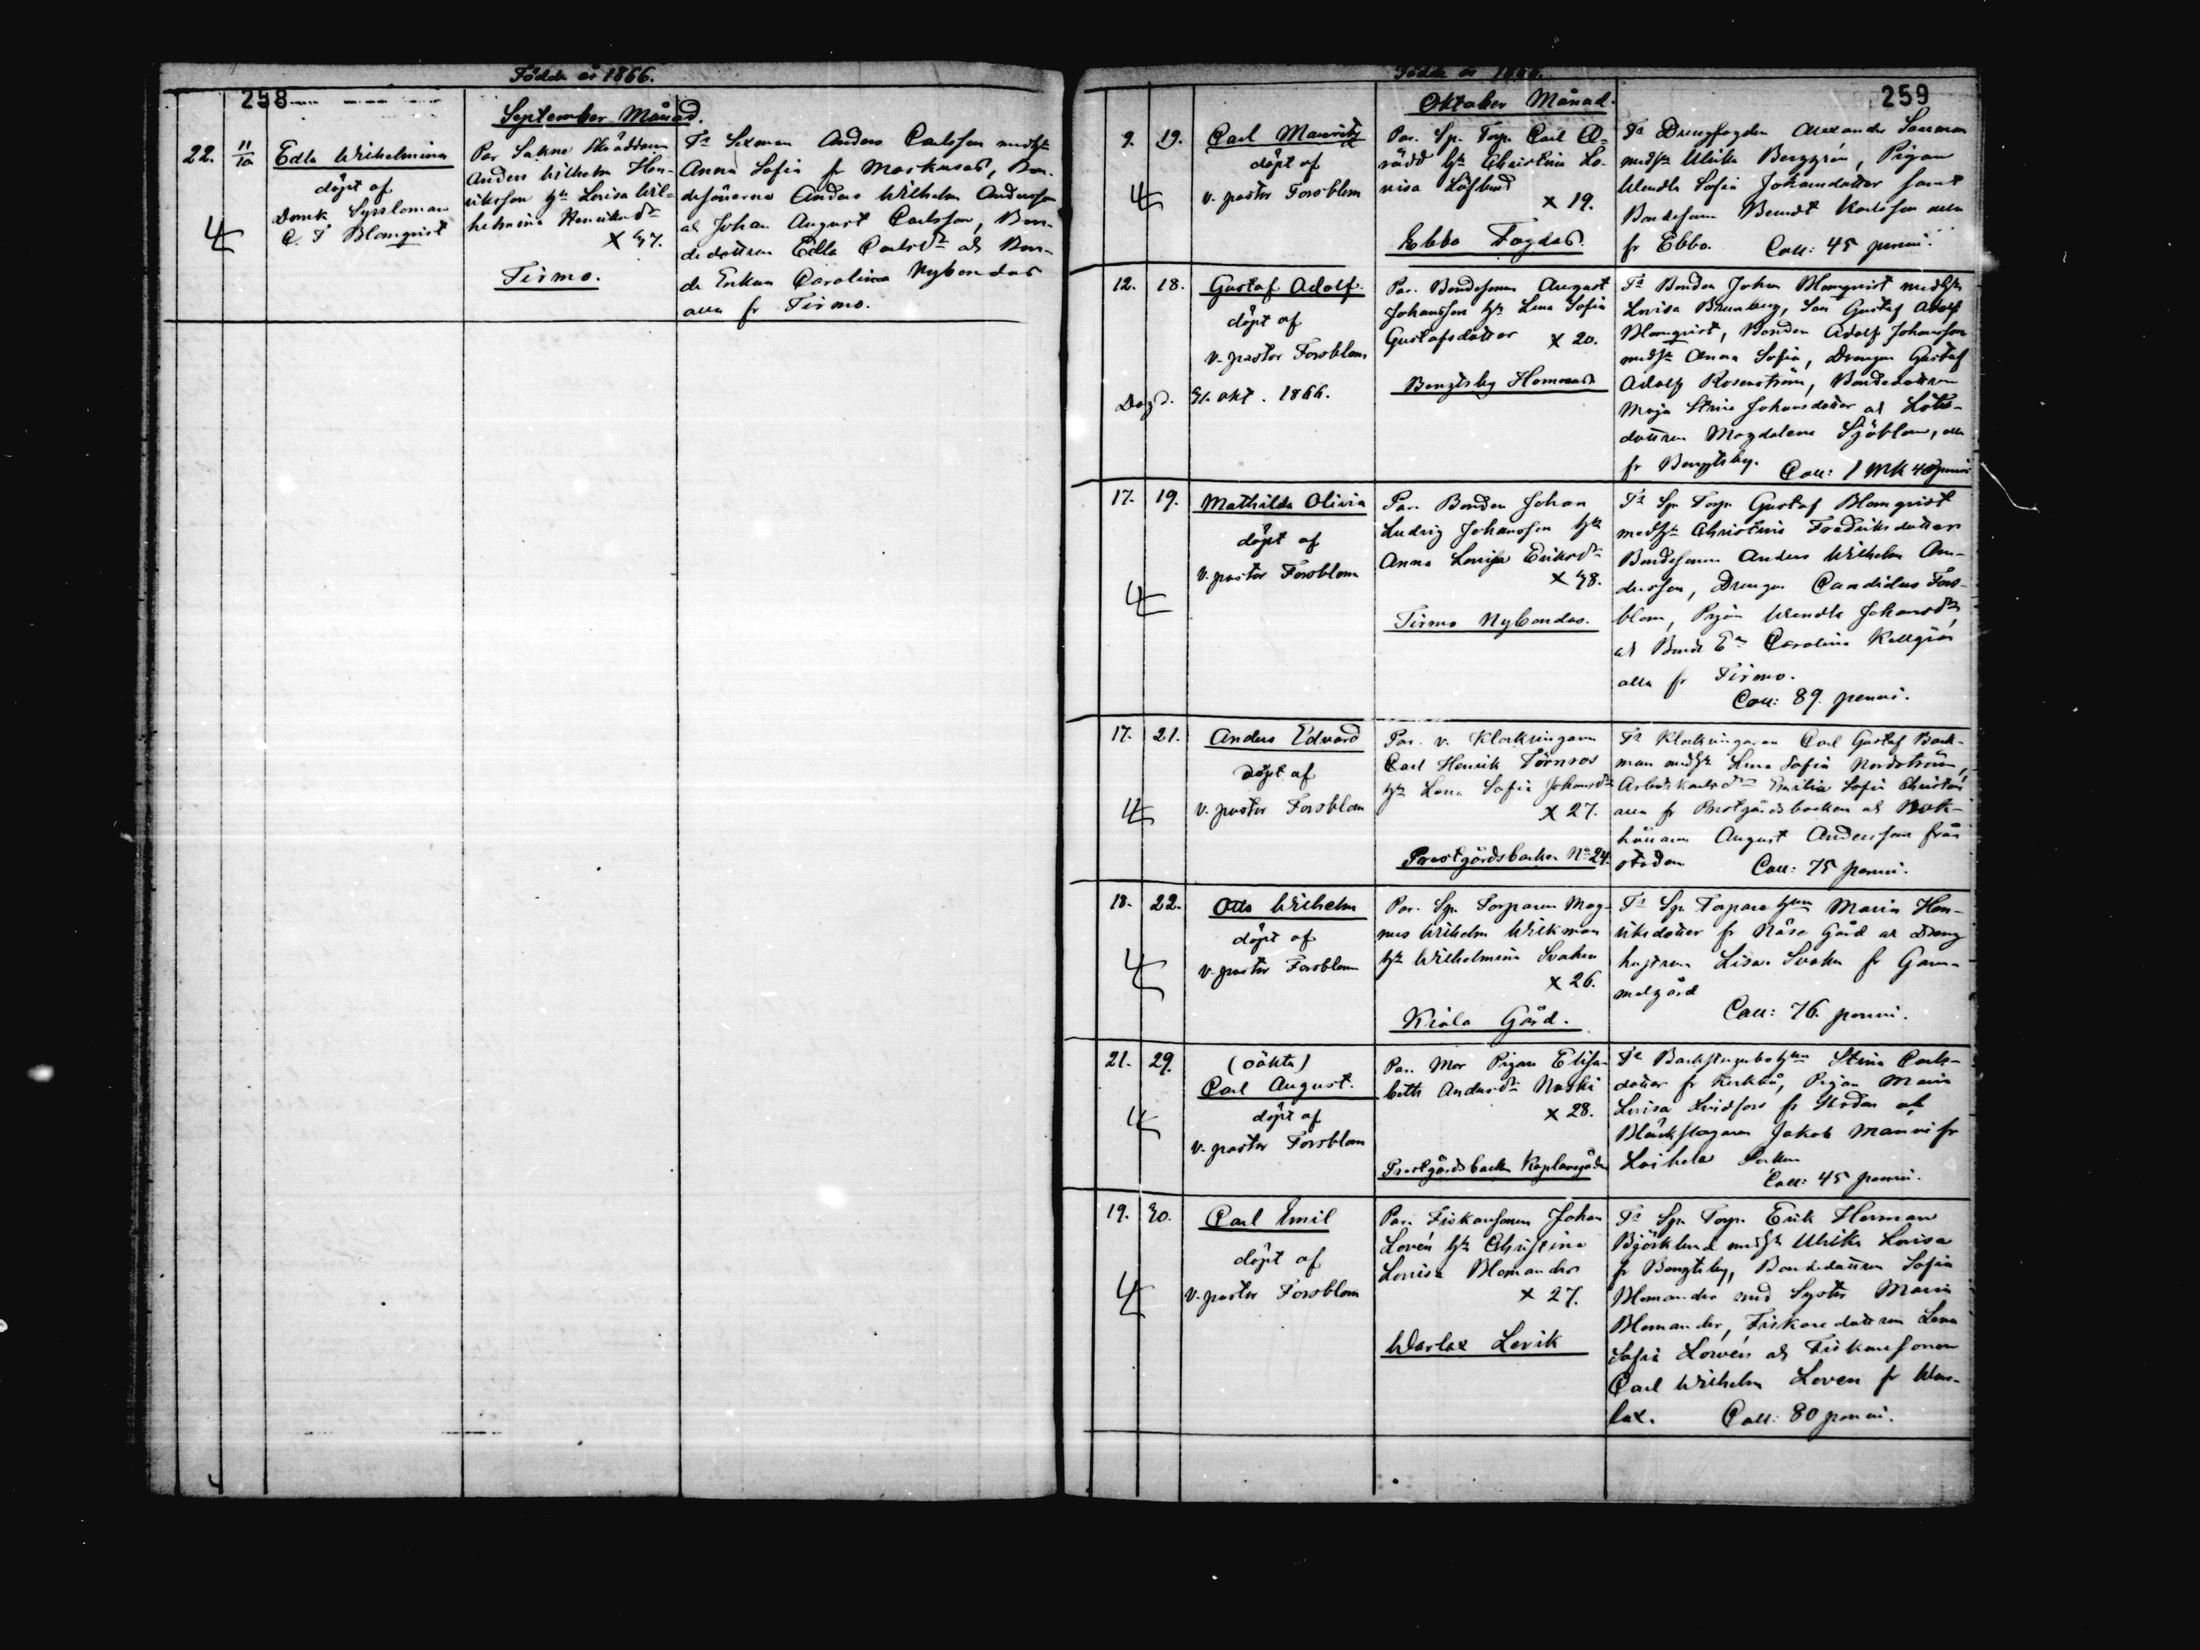 Födde år 1866.
258
September Månad.
22. 11/10 Edla Wilhelmina
döpt af
Domk Syssloman
C. F Blomqvist
Par Sakne Skräddaren
Anders Wilhelm Hen-
riksson h: Lovisa Wil-
helmina Henriksdr
x 37.
Tirmo.
Fr Sexman Anders Carlsson med h:
Anna Sofia fr Moskusas, Bon-
desönerna Anders Wilhelm Andersson
ah Johan August Carlsson, Bon-
dedottren Edla Carlsdr ah Bon-
de Enkan Carolina Nybondas
alla fr Tirmo.
Födde år 1866.
259
Oktober Månad.
9. 19. Carl Mauritz
döpt af
v. pastor Forsblom
Par. Sp. Torp. Carl A=
rädd h: Christina Lo-
visa Löflund
x 19.
Ebbo Fogdas.
Fr Drengfogden Alexander Saxman
med h: Ulrika Berggrén, Pigan
Wendla Sofia Johansdotter samt
Bondesonen Berndt Karlsson alla
fr Ebbo. Coll: 45 penni.
12. 18. Gustaf Adolf.
döpt af
v. pastor Forsblom
Dog d. 31. okt. 1866.
Par. Bondesonen August
Johansson h: Lena Sofia
Gustafsdotter x 20.
Bengtsby Hommas
Fr Bonden Johan Blomqvist med h:
Lovisa Brunberg, Son Gustaf Adolf
Blomqvist, Bonden Adolf Johansson
med h: Anna Sofia, Drengen Gustaf
Adolf Rosenström, Bondedottren
Maja Stina Johansdotter ah Lots-
dottren Magdalena Sjöblom, alla
fr Bengtsby. Coll: 1 mk 40 penni
17. 19. Mathilda Olivia
döpt af
v. pastor Forsblom
Par. Bonden Johan
Ludvig Johansson h:
Anna Lovisa Eriksdr
x 38.
Tirmo Nybondas.
Fr Sp. Torp. Gustaf Blomqvist
med h: Christina Fredriksdotter
Bondesonen Anders Wilhelm An-
dersson, Drengen Candidus Fors-
blom, Pigan Wendla Johansdr,
ah Bonde En Carolina Kellgrén
alla fr Tirmo.
Coll: 89. penni.
17. 21. Anders Edvard
döpt af
v. pastor Forsblom
Par. v. Klockringaren
Carl Henrik Törnroos
h: Lena Sofia Johansdr
x 27.
Prestgårdsbacken No 24.
Fr Klockringaren Carl Gustaf Back-
man med h: Lena Sofia Nordström,
Arbetskarlsdr Emilia Sofia
alla fr Prestgårdsbacken ah Bok-
hållaren August Andersson från
staden Coll: 75 penni.
18. 22. Otto Wilhelm
döpt af
v. pastor Forsblom
Par. Sp. Torparen Mag-
nus Wilhelm Wilkman
h: Wilhelmina Svahn
x 26.
Kiala Gård.
Fr Sp. Torpare h:un Maria Hen-
riksdotter fr Näse Gård ah Dreng
hustrun Lisa Svahn fr Gam-
melgård
Coll: 76. penni.
21. 29. (oäkta)
Carl August.
döpt af
v. pastor Forsblom
Par. Mor Pigan Elisa-
beth Andersdr Naski
x 28.
Prestgårdsbacken Kaplansgården
Fr Backstugubo h:un Stina Carls-
dotter fr Kerkkå, Pigan Maria
Lovisa Lindfors fr Staden ah
Bläckslagaren Jakob Manni fr
Laihela Socken
Coll: 45 penni.
19. 30. Carl Emil
döpt af
v. pastor Forsblom
Par. Fiskarsonen Johan
Lovén h: Christina
Lovisa Blomander
x 27.
Warlax Levik
Fr Sp. Torp. Erik Herman
Björklund med h: Ulrika Lovisa
fr Bengtsby, Bondedottren Sofia
Blomander med Syster Maria
Blomander, Fiskaredottren Lena
Sofia Lovén ah Fiskarsonen
Carl Wilhelm Loven fr War-
lax. Coll: 80 penni.